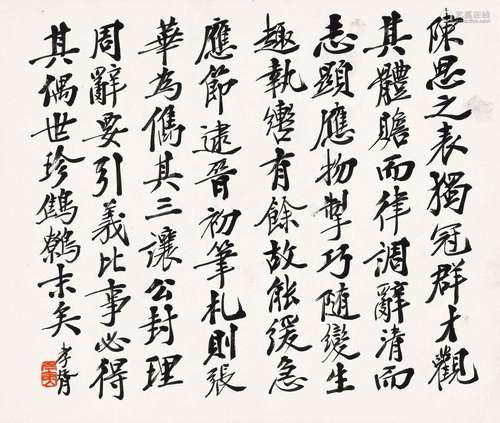 陳思之表獨冠群才觀
其體贍而律調辭清而
志顯應物掣巧随變生
趣執轡有餘故能緩急
應節逮晉初筆札則張
華為儁其三讓公封理
周辭要引義比事必得
其偶世珍鷦鷯末矣
孝胥